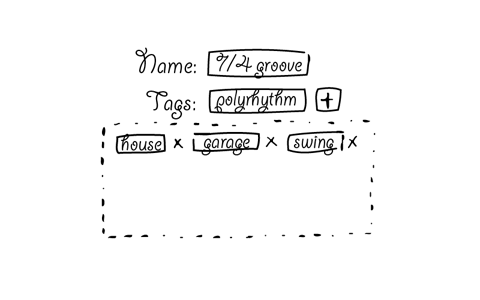 Name: 7/4 groove
Tags: polyrhythm +
house x garage x swing x